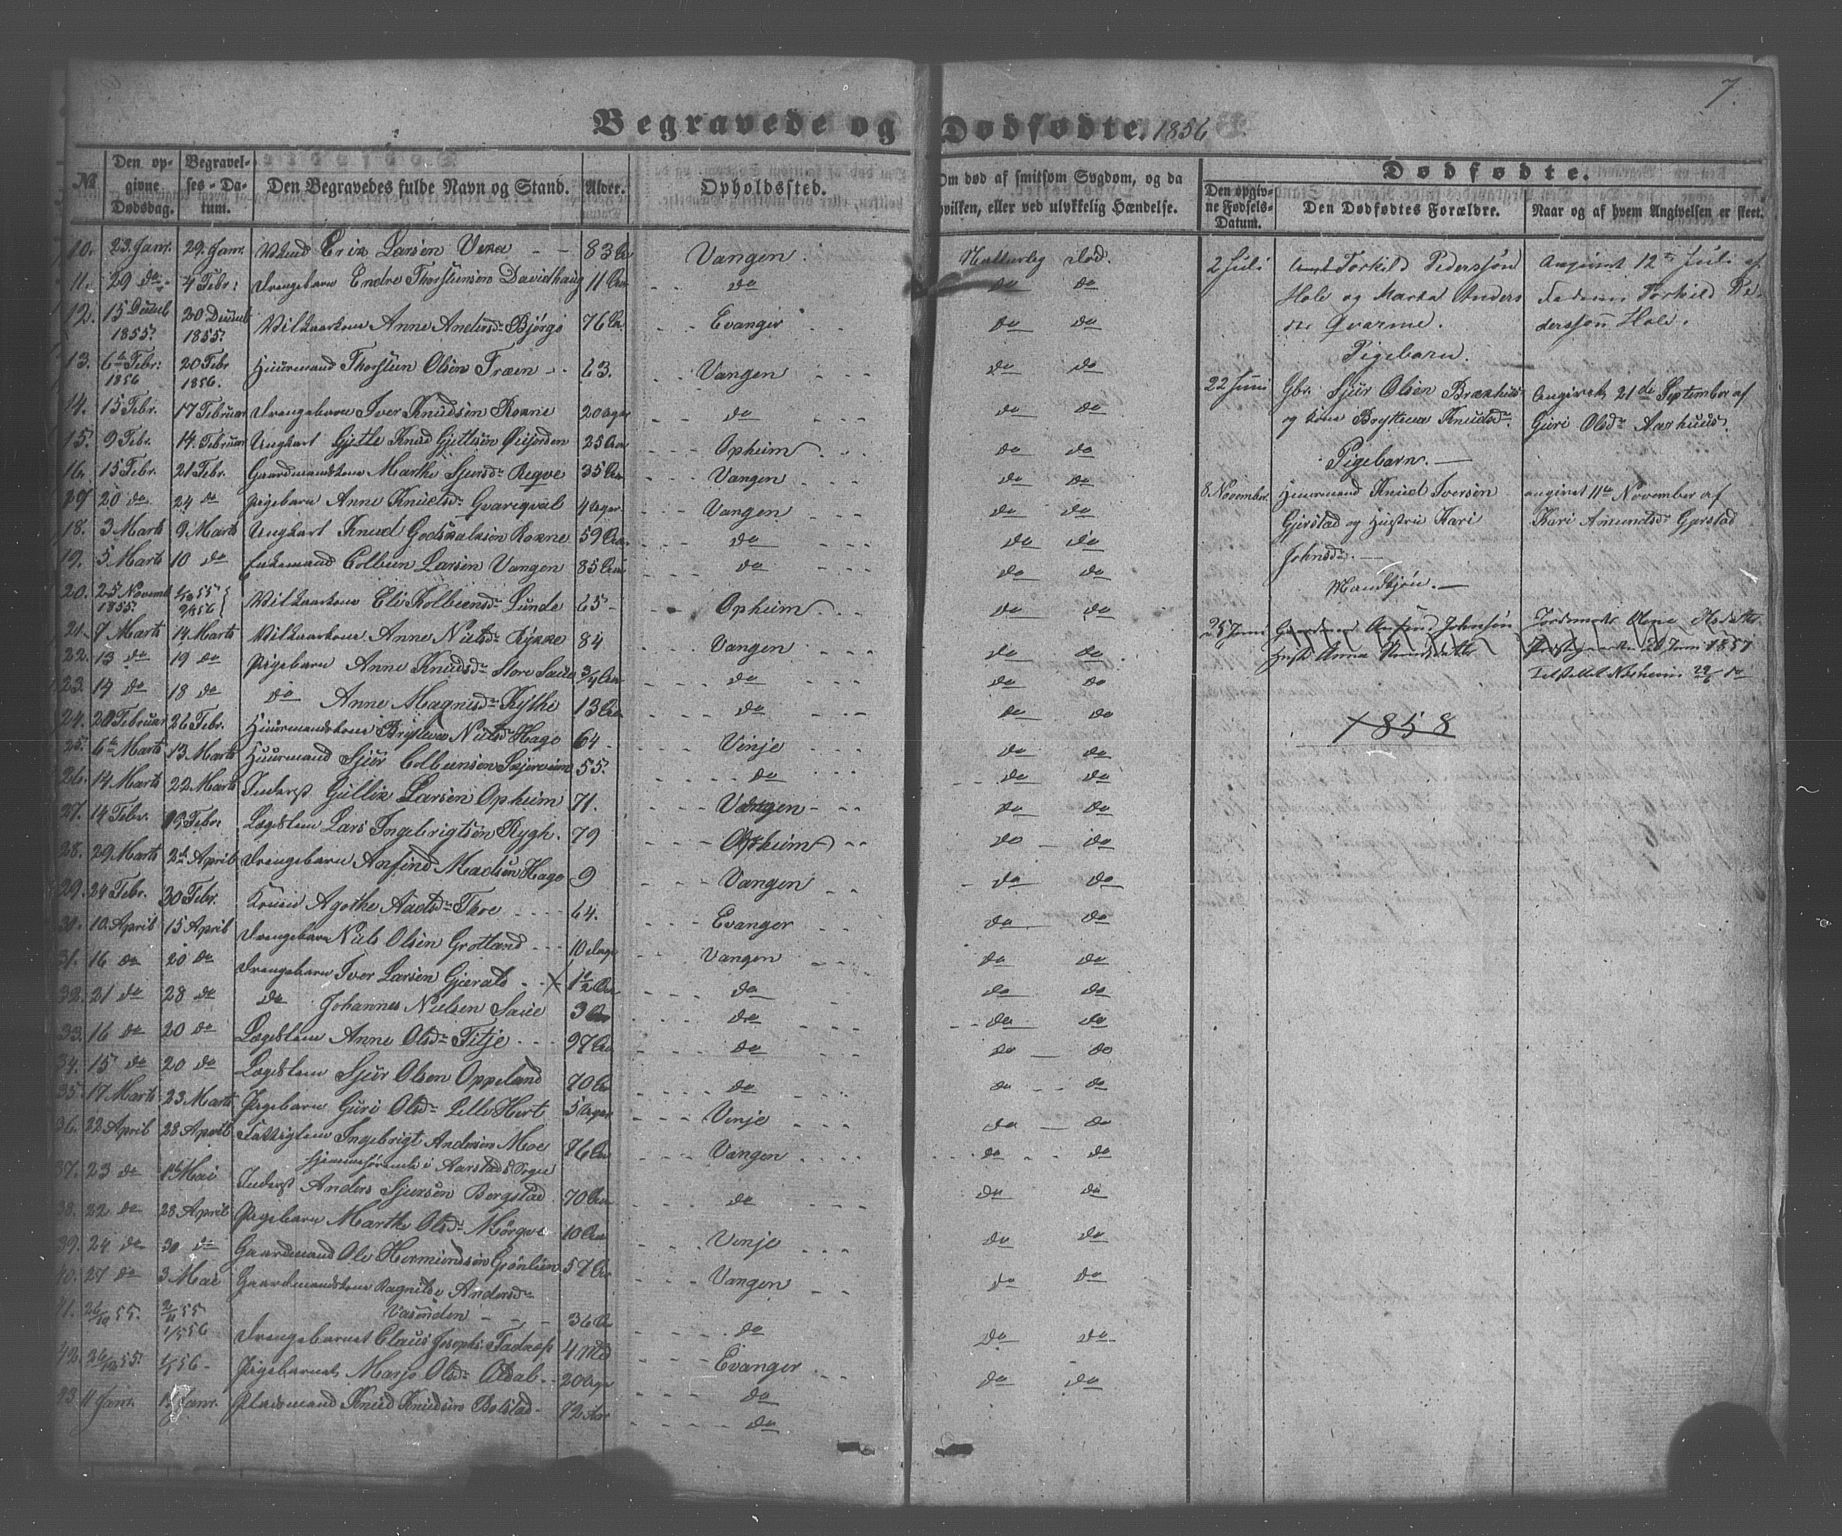 7.
Begravede og Dødfødte. 1856
No Den opgivne Dødsdag. Begravelses-Datum. Den Begravedes fulde Navn og Stand. Alder. Opholdssted. Om død af smitsom Sygdom, og da hvilken, eller ved ulykkelig Hændelse.
10. 23 Janr. 29. Janr. Erik Larsen 83 Aar Vangen Naturlig Død.
11. 29 do 4 Febr: Drengebarn Endre Thorstensen Davidhaug 11 Aar do do do
12. 15 Decbr 1855. 20 Decbr 1855. Vilkaarkone Anne Andersdr Bjørge 76 Aar Evanger do do
13. 6te Febr: 1856 20 Febr 1856. Huusmand Thorsten Olsen Træen 63. Vangen do do
14. 15 Febr. 17 Februar Drengebarn Iver Knudsen Rokne 20 Dager do do do
15. 9 Febr. 14 Februar Ungkarl Gjetle Knud Gjetlesøn 25 Aar Opheim do do
16. 15 Febr. 21 Febr. Gaardmandskone Marthe Sjursdr Reqve 35 Aar Vangen do do
17 20 do 24 do Pigebarn Anne Knudsdr 4 Dager Vangen do do
18. 3 Marts 9 Marts Ungkarl Knud Godskalksen Rokne 59 Aar do do do
19. 5 Marts 10 do Enkemand Colbein Larsen Vangen 85 Aar do do do
20. 25 Novemb 1855. Vilkaarkone Eli Kolbeinsdr Lunde 65 Opheim do do
21. 7 Marts 14 Marts Vilkaarkone Anne Nielsdr Rykke 84 Vangen do do
22. 13 do 19 do Pigebarn Anne Knudsdr Store Saue 3/4 Aar do do do
23. 14 do 18 do do Anne Magnedr Kythe 13 Aar do do do
24. 20 Februar 26 Febr. Huusmandskone Brytteva Nielsdr Hage 64 Vinje do do
25. 6te Marts 13 Marts Huusmand Sjur Colbeinsen 55. do do do
26. 14 Marts 22 Marts Inderst Gullik Larsen Opheim 71. Vangen do do
27. 14 Febr. 19 Febr. Lægdslem Lars Ingebrigtsøn Rygh. 79 Opheim do do
28. 29 Marts 2de April Drengebarn Anfind Madsen Hage 9 Vangen do do
29. 24 Febr. 30 Febr. Agathe Aadsdr Thoe 64. Evanger do do
30. 10 April 15 April Drengebarn Niels Olsen Grotland 10 Dage Vangen do do
31. 16 do 20 do Drengebarn Iver Larsen Gjerald 1 1/2 Aar do do do
32. 21 do 28 do do Johannes Nielsen Saue 3 Aar do do do
33. 16 do 20 do Lægdslem Anne Olsdr Fitje 97 Aar do do do
34. 15 do 20 do Lægdslem Sjur Olsen Oppeland 70 Aar do do do
35. 17 Marts 23 Marts Pigebarn Guri Olsdr Lille Hert 5 Dager Vinje do do
36. 22 April 28 April Fattiglem Ingebrigt Andersen Moe 76 Aar Vangen do do
Hjemmehørende i Aarstads Sogn
37. 23 do 1ste Mai Inderst Anders Sjursen Bergstad 70 Aar do do do
38. 22 do 28 April Pigebarn Marthe Olsdr Mørqve 10 Aar Vinje do do
39. 24 do 30 do Gaardmand Ole Hermundsøn Grønlien 57 Aar Vangen do do
40. 27 do 3 Mai Gaardmandskone Ragnilde Andersdr Vasenden 36 Aar do do do
41. 26/10 55. 2/11 55 1/5 56 Drengebarnet Claus Josephs. Fadnæs 4 Md Evanger do do
42. 26/12 55. 1/1 56 Pigebarnet Marjo Olsdr 20 Dage do
43 11 Janr. Janr. Pladsmand Knud Knudsen Bolstad 72 Aar do
Dødfødte.
Den opgivne Fødsels-Datum. Den Dødfødtes Forældre. Naar og af hvem Angivelsen er skeet.
2 Juli Torkild Pedersøn Hole og Marta Andersdr Qvarme. Pigebarn. Angivet 12te Juli af Faderen Torkild Pederssøn Hole.
22 Juni Gbr. Sjur Olsen Brækhus og Kone Brytteva Knudsdr Pigebarn. Angivet 21de September af Guri Olsdr Aarhuus.
8. November Huusmand Knud Iversøn Gjerstad og Hustru Kari Johnsdr. Mandkjøn. angivet 11te November af Kari Amundsdr Gjerstad
25 Juni Johnsøn Hust. Anna Jordemoder 26 Juni 1857
1858